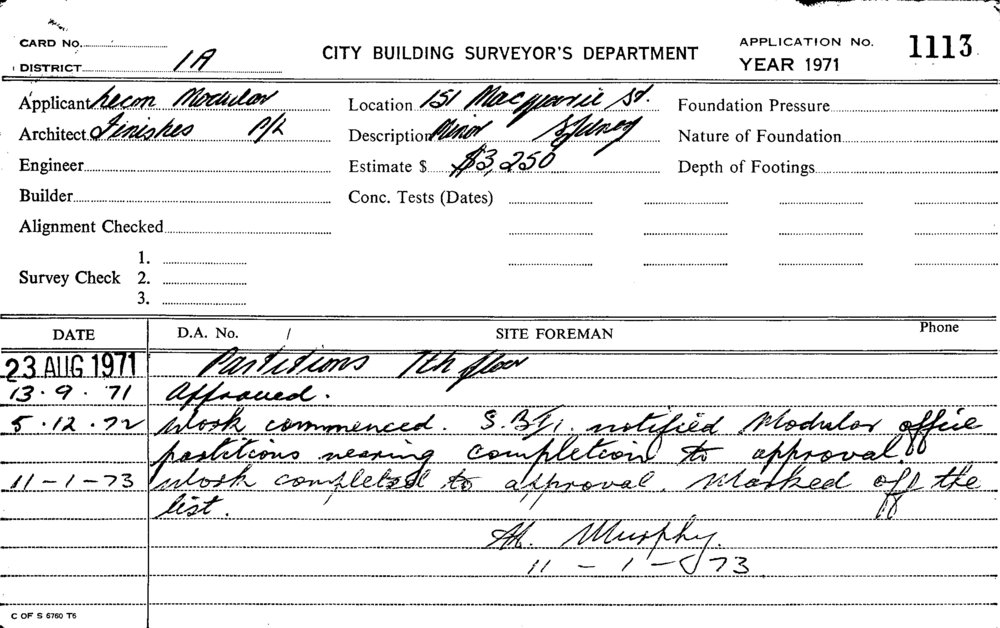 CARD No.
DISTRICT 1A
CITY BUILDING SURVEYOR'S DEPARTMENT
APPLICATION No. 1113
YEAR 1971
Applicant Lecon Modular
Location 151 Macquarie St.
Foundation Pressure
Architect Finishes P/L
Description Minor Sydney
Nature of Foundation
Engineer
Estimate $ $3,250
Depth of Footings
Builder
Conc. Tests (Dates)
Alignment Checked
1.
Survey Check 2.
3.
DATE D.A. No. / SITE FOREMAN Phone
23 AUG 1971 Partitions 7th floor
13.9.71 Approved.
5.12.72 Work commenced. notified Modular office
partitions nearing completion to approval
11-1-73 Work completed to approval. Marked off the
list.
Murphy.
11-1-73
C OF S 6760 T6